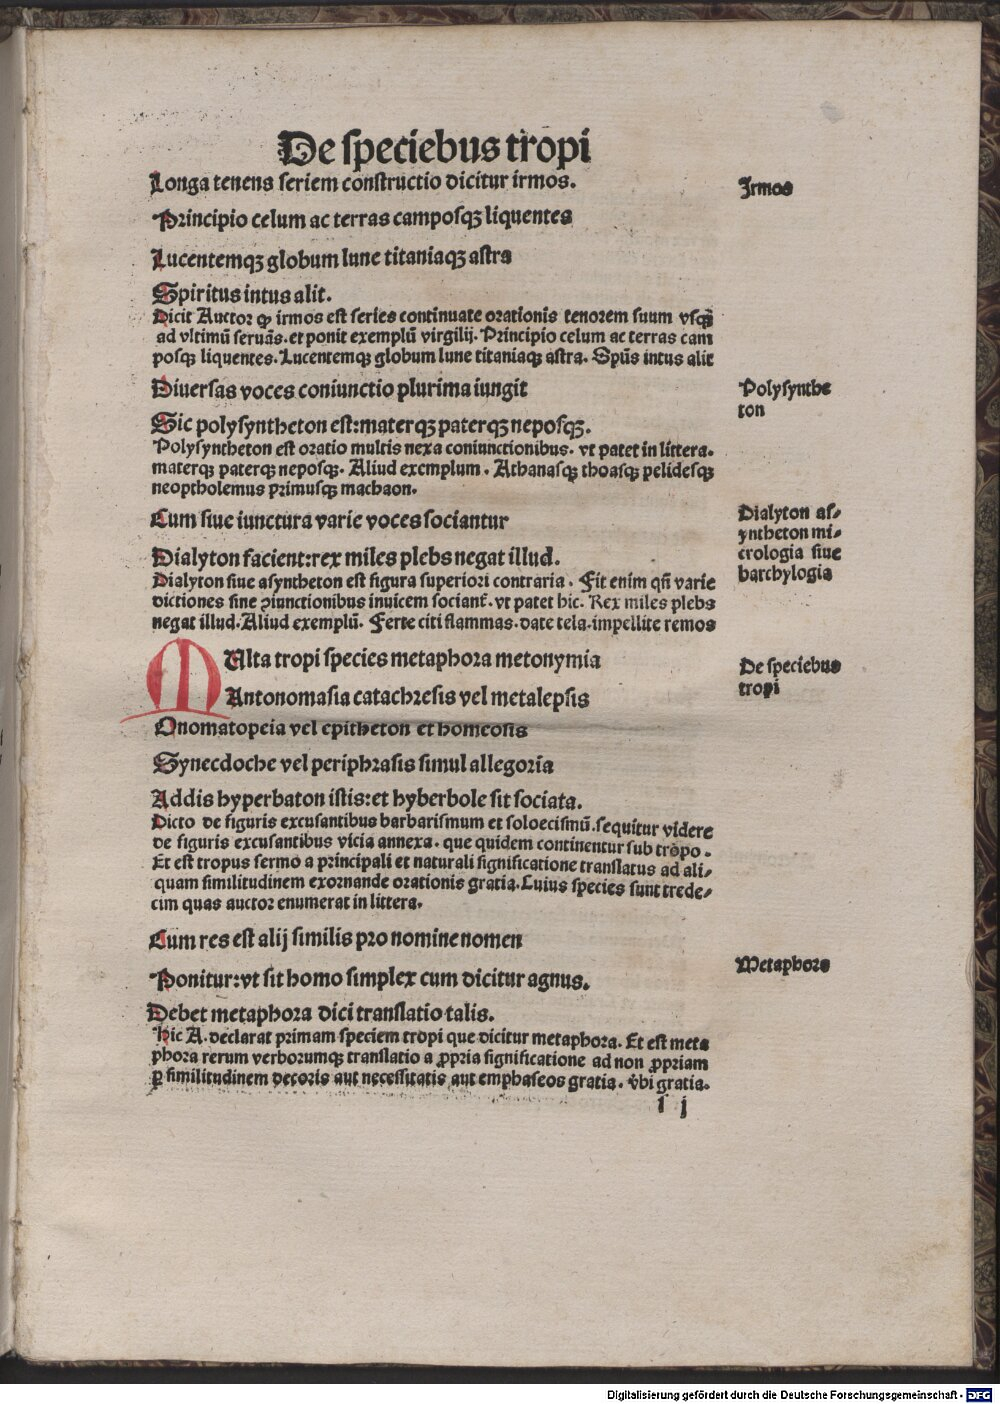 De speciebus tropi
Longa tenens seriem constructio dicitur irmos.
Irmos
Principio celum ac terras camposqꝫ liquentes
Lucentemqꝫ globum lune titaniaqꝫ astra
Spiritus intus alit.
Dicit Auctor ꝙ irmos est series continuate orationis tenorem suum vsqꝫ
ad vltimū seruās. et ponit exemplū virgilij. Principio celum ac terras cam
posqꝫ liquentes. Lucentemqꝫ globum lune titaniaqꝫ astra. Spūs intus alit
Diuersas voces coniunctio plurima iungit
Polysynthe
ton
Sic polysyntheton est:materqꝫ paterqꝫ neposqꝫ.
Polysyntheton est oratio multis nexa coniunctionibus. vt patet in littera.
materqꝫ paterqꝫ neposqꝫ. Aliud exemplum. Athanasqꝫ thoasqꝫ pelidesqꝫ
neoptholemus primusqꝫ machaon.
Cum siue iunctura varie voces sociantur
Dialyton as⸗
yntheton mi⸗
crologia siue
barchylogia
Dialyton facient:rex miles plebs negat illud.
Dialyton siue asyntheton est figura superiori contraria. Fit enim qn̄ varie
dictiones sine ꝯiunctionibus inuicem sociant᷑. vt patet hic. Rex miles plebs
negat illud. Aliud exemplū. Ferte citi flammas. date tela. impellite remos
MUlta tropi species metaphora metonymia
De speciebus
tropi
Antonomasia catachresis vel metalepsis
Onomatopeia vel epitheton et homeosis
Synecdoche vel periphrasis simul allegoria
Addis hyperbaton istis:et hyberbole sit sociata.
Dicto de figuris excusantibus barbarismum et soloecismū. sequitur videre
de figuris excusantibus vicia annexa. que quidem continentur sub tropo.
Et est tropus sermo a principali et naturali significatione translatus ad ali⸗
quam similitudinem exornande orationis gratia. Cuius species sunt trede⸗
cim quas auctor enumerat in littera.
Cum res est alij similis pro nomine nomen
Metaphora
Ponitur:vt sit homo simplex cum dicitur agnus.
Debet metaphora dici translatio talis.
Hic A. declarat primam speciem tropi que dicitur metaphora. Et est meta
phora rerum verborumqꝫ translatio a ꝓpria significatione ad non ꝓpriam
ꝑ similitudinem decoris aut necessitatis aut emphaseos gratia. vbi gratia.
l j
Digitalisierung gefördert durch die Deutsche Forschungsgemeinschaft - DFG